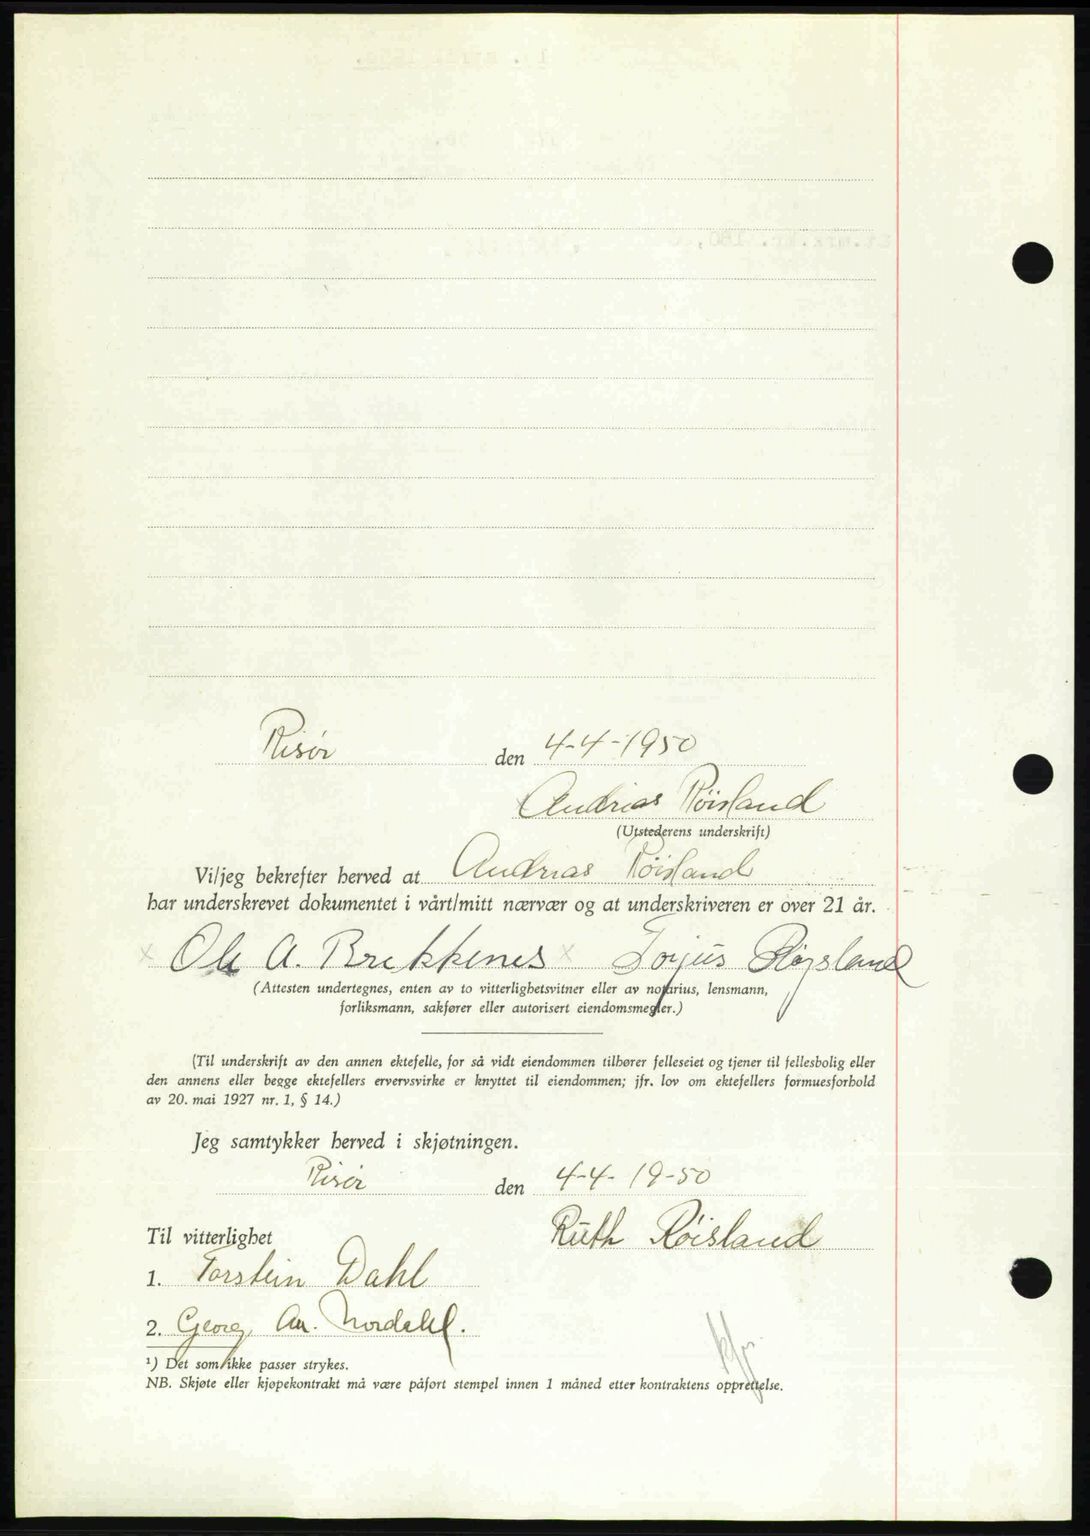 Risør den 4-4-1950
Andrias Röisland
(Utstederens underskrift)
Vi/jeg bekrefter herved at Andrias Röisland
har underskrevet dokumentet i vårt/mitt nærvær og at underskriveren er over 21 år.
x Ole A. Brekkenes x Torjus Røysland
(Attesten undertegnes, enten av to vitterlighetsvitner eller av notarius, lensmann,
forliksmann, sakfører eller autorisert eiendomsmegler.)
(Til underskrift av den annen ektefelle, for så vidt eiendommen tilhører felleseiet og tjener til fellesbolig eller
den annens eller begge ektefellers ervervsvirke er knyttet til eiendommen; jfr. lov om ektefellers formuesforhold
av 20. mai 1927 nr. 1, § 14.)
Jeg samtykker herved i skjøtningen.
Risør den 4-4-19-50
Til vitterlighet Ruth Røisland
1. Torstein Dahl
2. Georg An. Nordahl.
¹) Det som ikke passer strykes.
NB. Skjøte eller kjøpekontrakt må være påført stempel innen 1 måned etter kontraktens opprettelse.